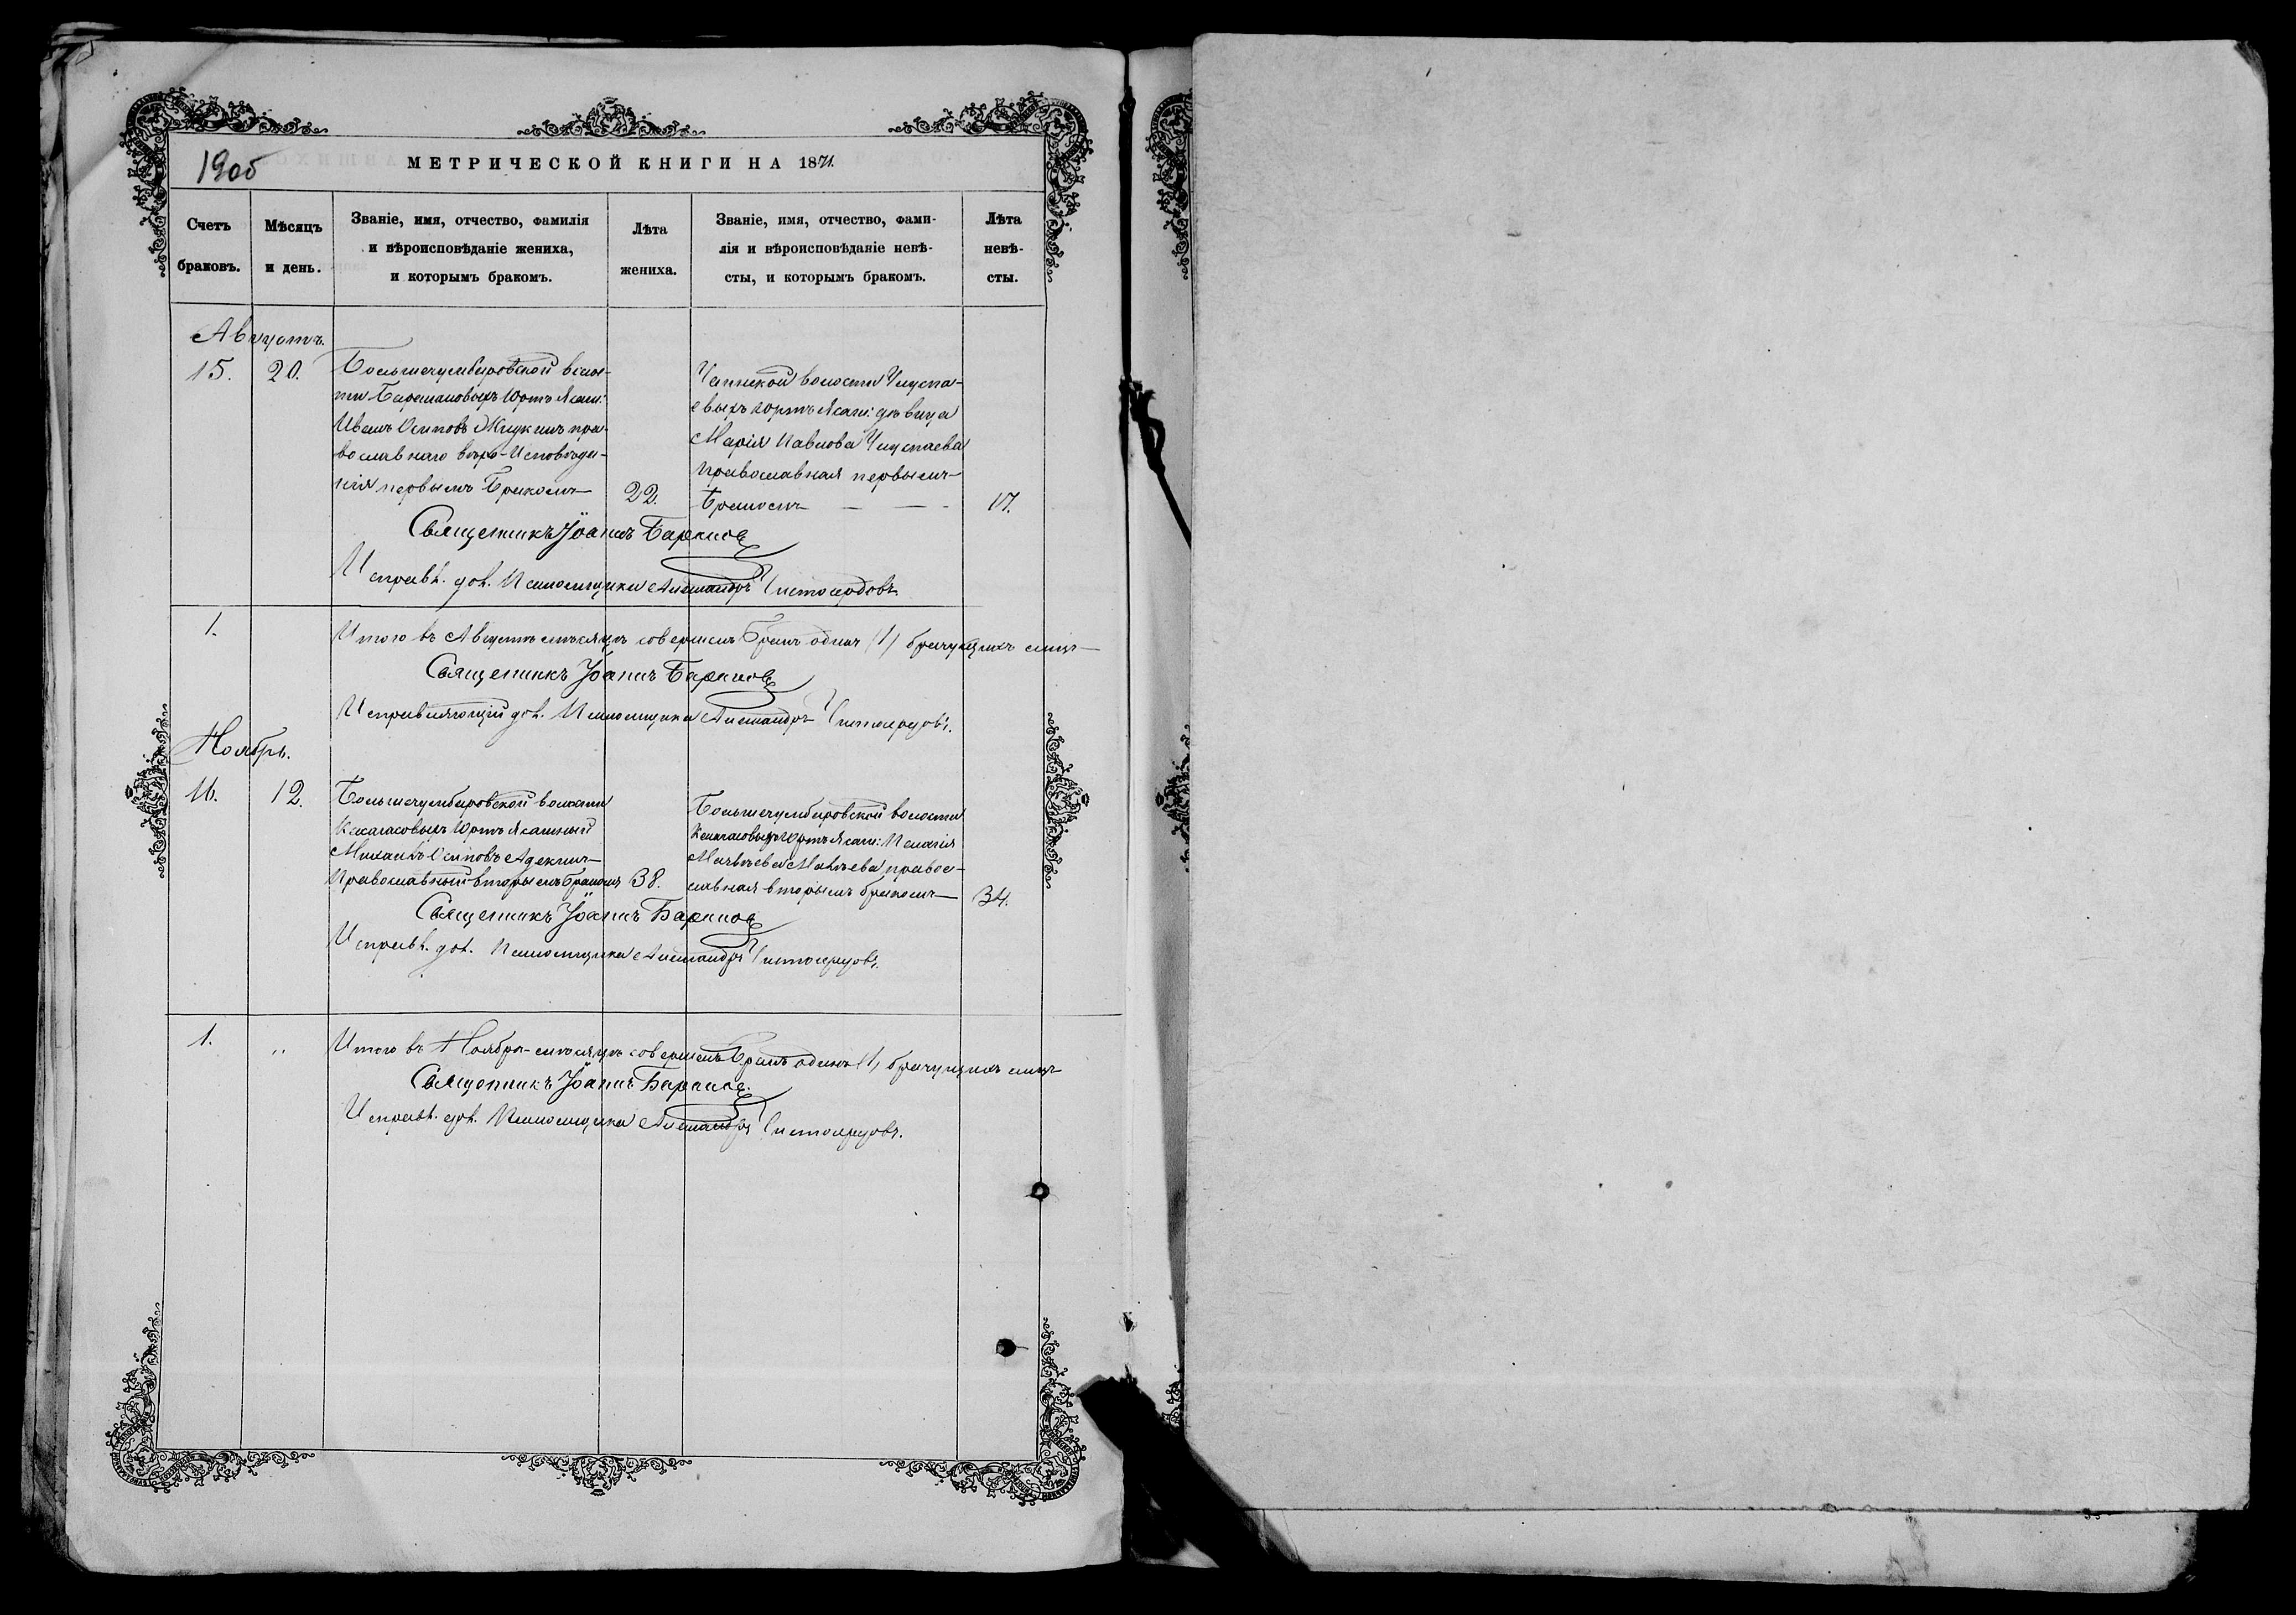 190об
МЕТРИЧЕСКОЙ КНИГИ НА 1871.
Счетъ браковъ.
Мѣсяцъ и день.
Званіе, имя, отчество, фамилія
и вѣроисповѣданіе жениха,
и которымъ бракомъ.
Лѣта жениха.
Званіе, имя, отчество, фами-
лія и вѣроисповѣданіе невѣ-
сты, и которымъ бракомъ.
Лѣта невѣ-
сты.
Августъ.
15.
20.
Большечулибировской волос-
ти юртъ Ясаш:
Иванъ Осиповъ пра-
вославнаго вѣро-Исповѣда-
нія первымъ Бракомъ
22.
волости
евыхъ юртъ Ясаш: дѣвица
Марія Павлова
православная первымъ
Бракомъ — — -
17.
Священникъ Іоаннъ
Исправл. дол. Псаломщика Александръ Чистосердовъ.
1.
Итого въ Августѣ мѣсяцѣ совершенъ Бракъ одинъ (1) брачущихъ лицъ
Священникъ Іоаннъ
Исправляющій дол. Псаломщика Александръ Чистосердовъ.
Ноябрь.
16.
12.
Большечулибировской волости
юртъ Ясашный
Михаилъ Осиповъ
Православный вторымъ бракомъ
38.
Большечулибировской волости
юртъ Ясаш: Пелагія
Матвѣева правос-
лавная вторымъ бракомъ
34.
Священникъ Іоаннъ
Исправл. дол. Псаломщика Александръ Чистосердовъ.
1.
„
Итого въ Ноябрѣ мѣсяцѣ совершенъ Бракъ одинъ (1) брачущихъ лицъ
Священникъ Іоаннъ
Исправл. дол. Псаломщика Александръ Чистосердовъ.